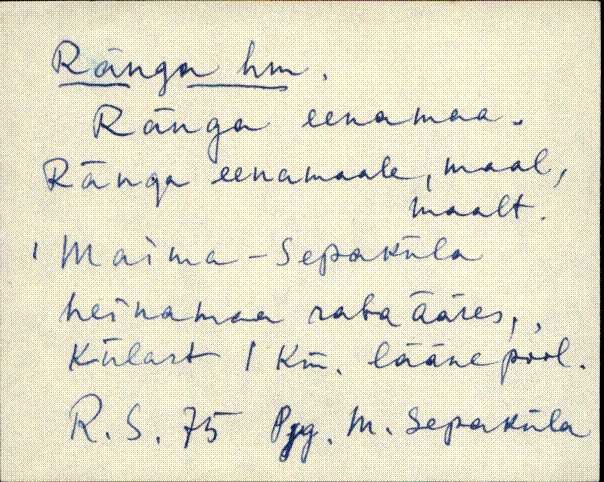 Ränga hm.
Ränga eenamaa.
Ränga eenamaale, maal,
maalt.
Maima-Sepaküla
heinamaa raba ääres,
külast 1 km. lääne pool.
R. S. 75 Pjg. M. Sepaküla